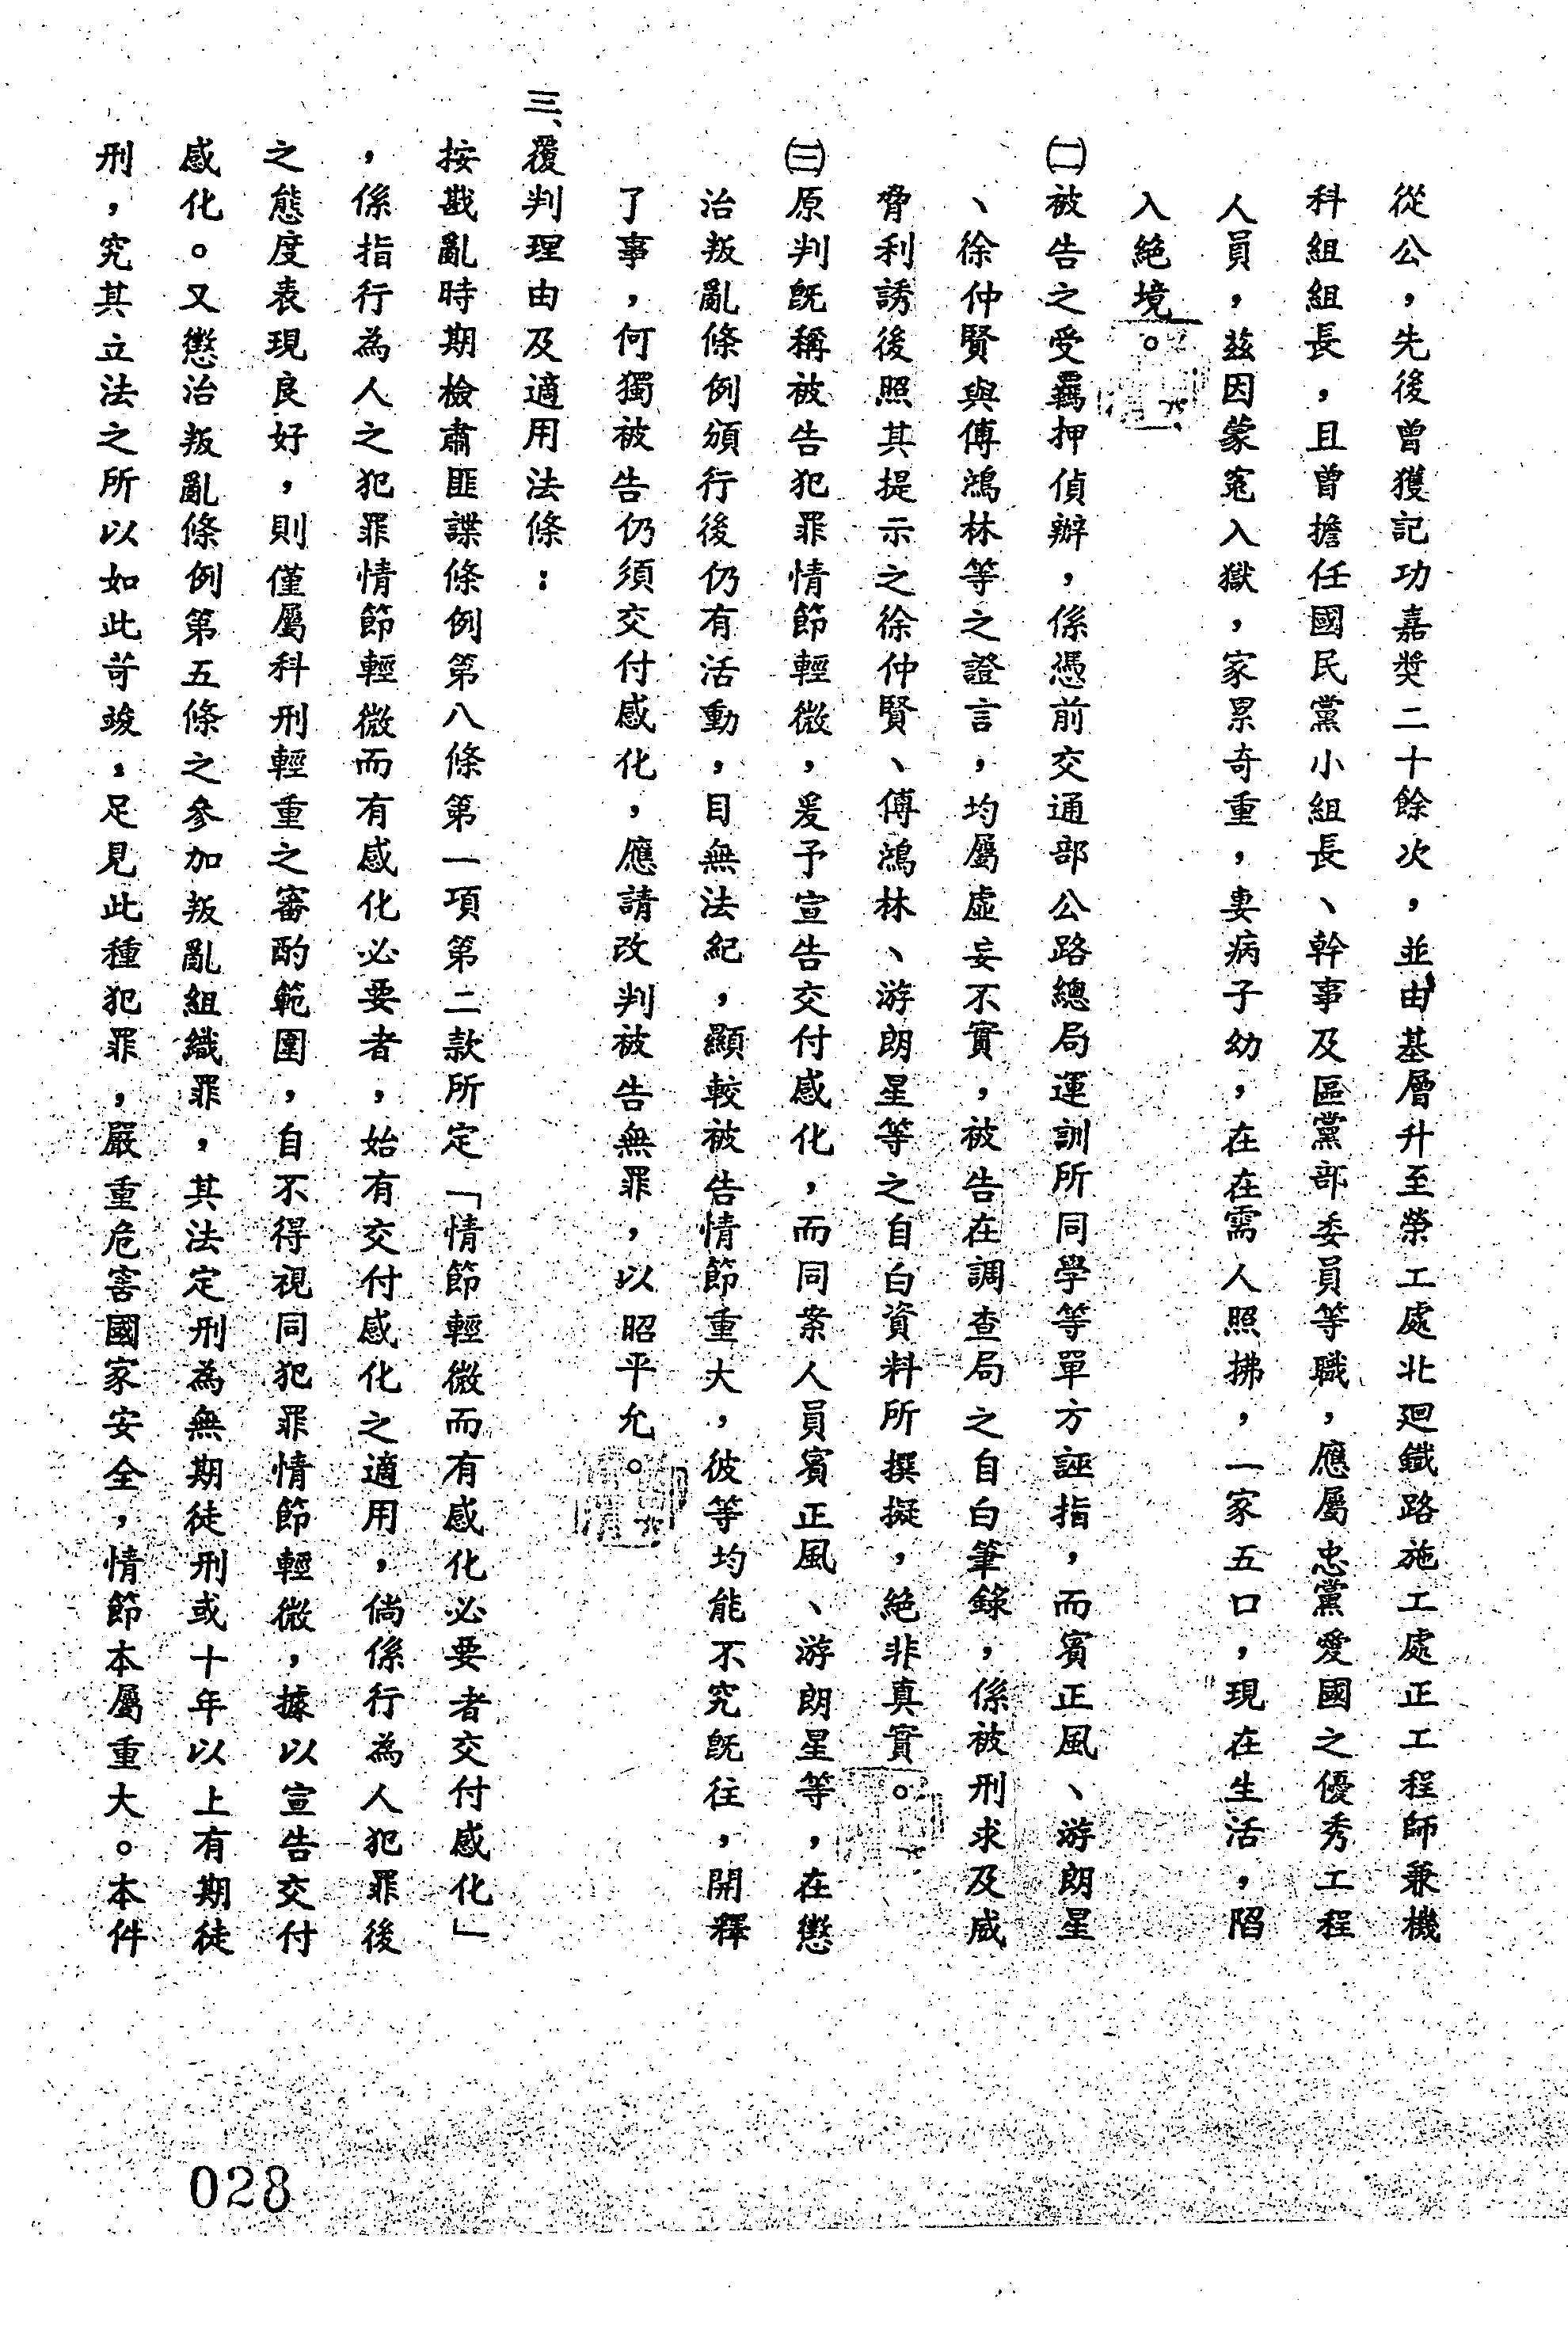 從公，先後曾獲記功嘉獎二十餘次，並由基層升至榮工處北迴鐵路施工處正工程師兼機
科組組長，且曾擔任國民黨小組長、幹事及區黨部委員等職，應屬忠黨愛國之優秀工程
人員，茲因蒙冤入獄，家累奇重，妻病子幼，在在需人照拂，一家五口，現在生活，陷
入絕境。
㈡被告之受羈押偵辦，係憑前交通部公路總局運訓所同學等單方誣指，而賓正風、游朗星
、徐仲賢與傅鴻林等之證言，均屬虛妄不實，被告在調查局之自白筆錄，係被刑求及威
脅利誘後照其提示之徐仲賢、傅鴻林、游朗星等之自白資料所撰擬，絕非真實。
㈢原判既稱被告犯罪情節輕微，爰予宣告交付感化，而同案人員賓正風、游朗星等，在懲
治叛亂條例頒行後仍有活動，目無法紀，顯較被告情節重大，彼等均能不究既往，開釋
了事，何獨被告仍須交付感化，應請改判被告無罪，以昭平允。
三、覆判理由及適用法條：
按戡亂時期檢肅匪諜條例第八條第一項第二款所定「情節輕微而有感化必要者交付感化」
，係指行為人之犯罪情節輕微而有感化必要者，始有交付感化之適用，倘係行為人犯罪後
之態度表現良好，則僅屬科刑輕重之審酌範圍，自不得視同犯罪情節輕微，據以宣告交付
感化。又懲治叛亂條例第五條之參加叛亂組織罪，其法定刑為無期徒刑或十年以上有期徒
刑，究其立法之所以如此苛竣，足見此種犯罪，嚴重危害國家安全，情節本屬重大。本件
028